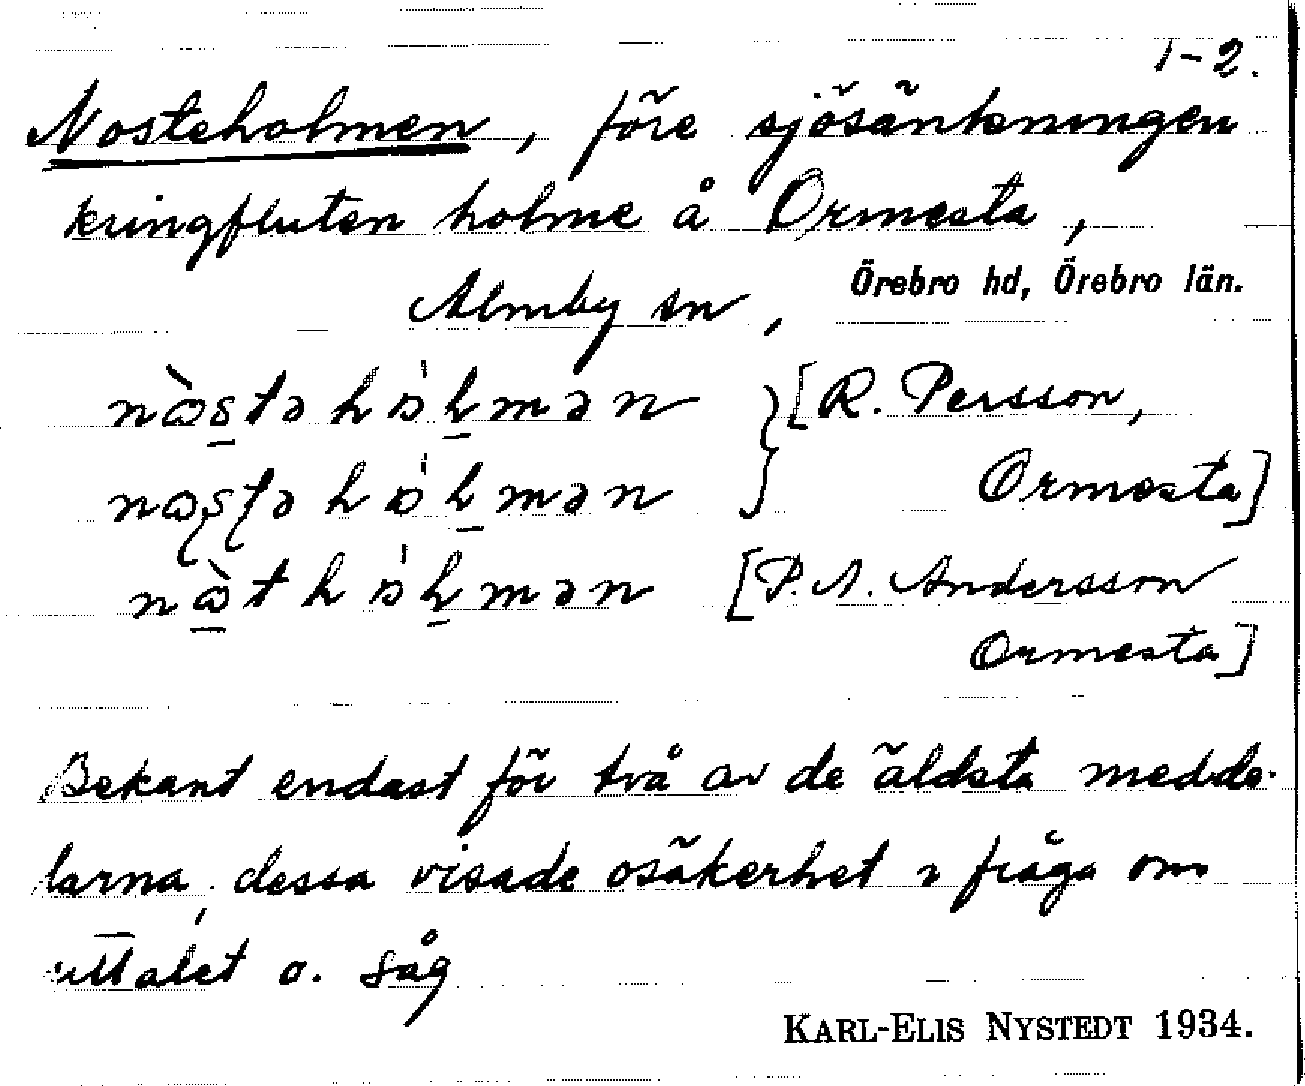 1-2.
Nosteholmen, före sjösänkningen
kringfluten holme å Ormesta,
Almby sn, Örebro hd, Örebro län.
nɷ̀stə hɔ̍ḻmən } [R. Persson,
nɷstə hɔ̍ḻmən } Ormesta]
nɷ̀t hɔ̍ḻmən [P.A. Andersson
Ormesta]
Bekant endast för två av de äldsta medde-
larna, dessa visade osäkerhet i fråga om
uttalet o. såg
KARL-ELIS NYSTEDT 1934.